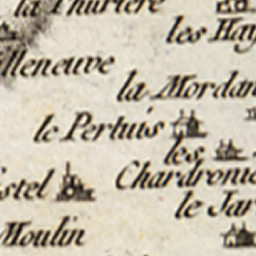 la Thuriere
les Hay
illeneuve
la Mordan
le Pertuis
les
Chardronie
stel
le Jar
Moulin